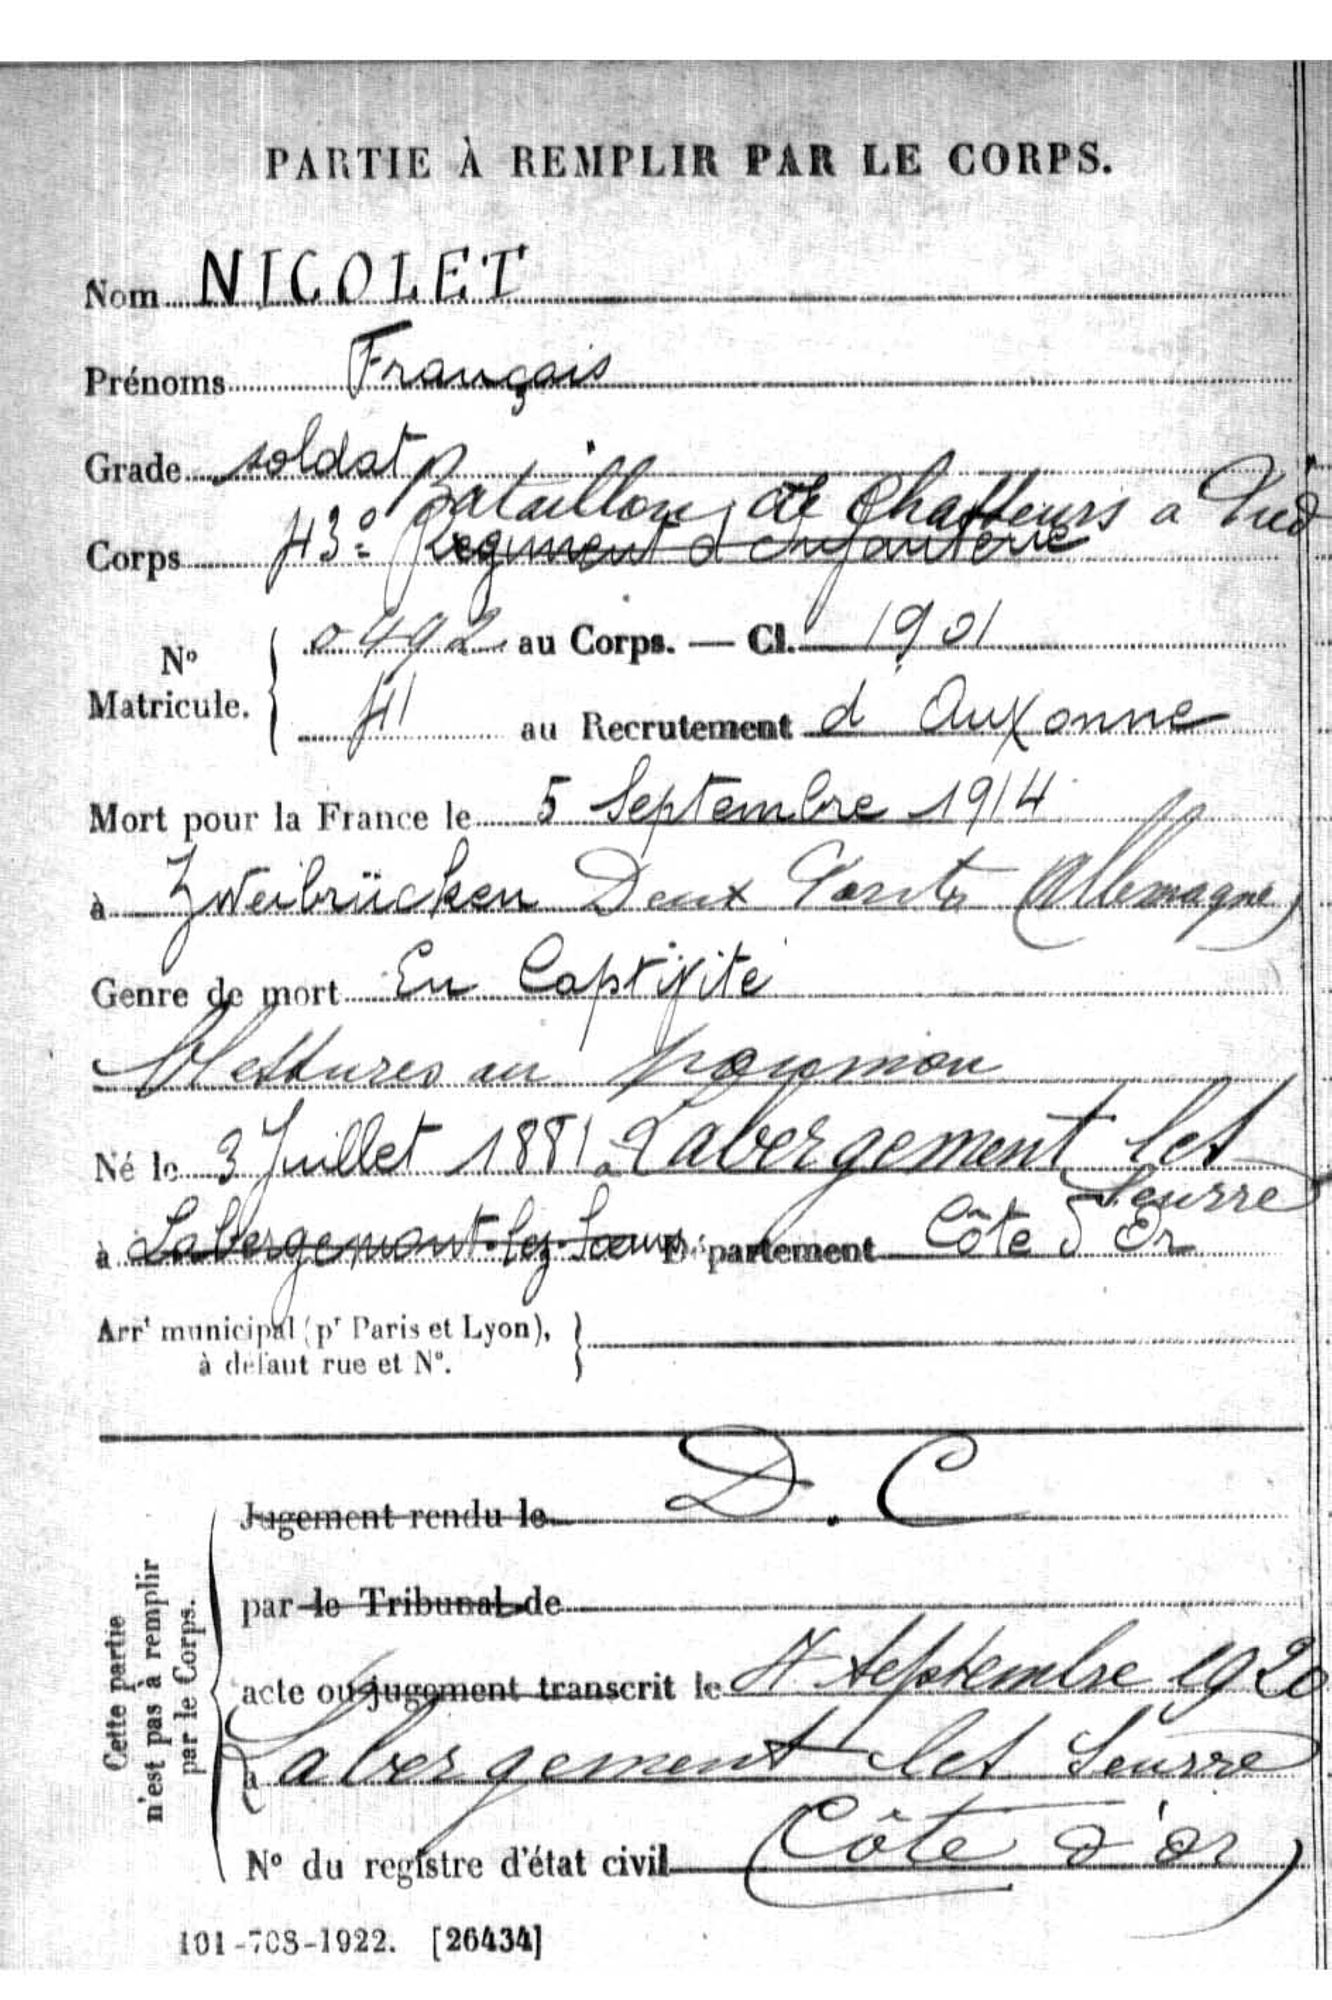 PARTIE À REMPLIR PAR LE CORPS.
Nom NICOLET
Prénoms Français
Grade soldat
Bataillon de Chasseurs a Pied
Corps 43e Régiment d'Infanterie
No Matricule. 0492 au Corps. — Cl. 1901
41 au Recrutement d Auxonne
Mort pour la France le 5 Septembre 1914
à Zweibrücken Deux Ponts (Allemagne)
Genre de mort En Captivité
blessures au poumon
Né le 3 Juillet 1881 à Labergement les
Seurre
à Labergemont-lez- Département Côte d'Or
Arrt municipal (pr Paris et Lyon),
à défaut rue et No.
D. C
Jugement rendu le
par le Tribunal de
acte ou jugement transcrit le Septembre 1920
à Labergement les Seurre
No du registre d'état civil (Côte d'or)
Cette partie
n'est pas à remplir
par le Corps.
101-708-1922. [26434]